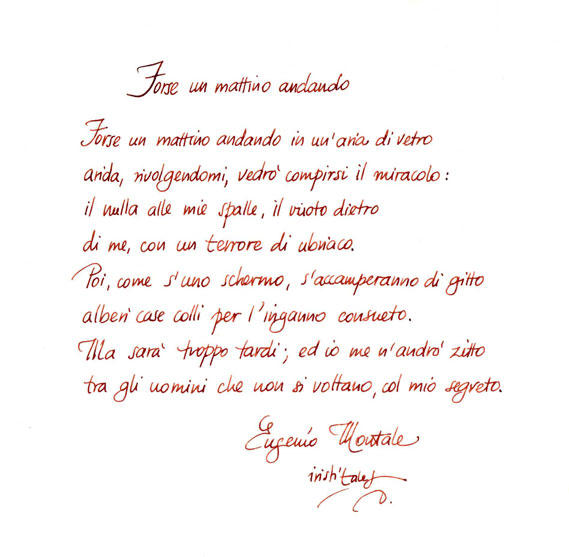 Forse un mattino andando
Forse un mattino andando in un'aria di vetro
arida, rivolgendomi, vedrò compirsi il miracolo:
il nulla alle mie spalle, il vuoto dietro
di me, con un terrore di ubriaco.
Poi, come s'uno schermo, s'accamperanno di gitto
alberi case colli per l'inganno consueto.
Ma sarà troppo tardi; ed io me n'andrò zitto
tra gli uomini che non si voltano, col mio segreto.
Eugenio Montale
irish'tales